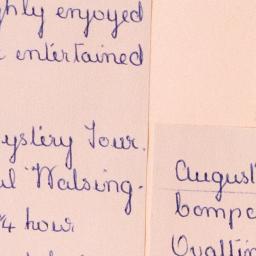 ghly enjoyed
entertained
ystery Tour.
ul Walsing-
1/4 hour
August
Compa
Ovaltin